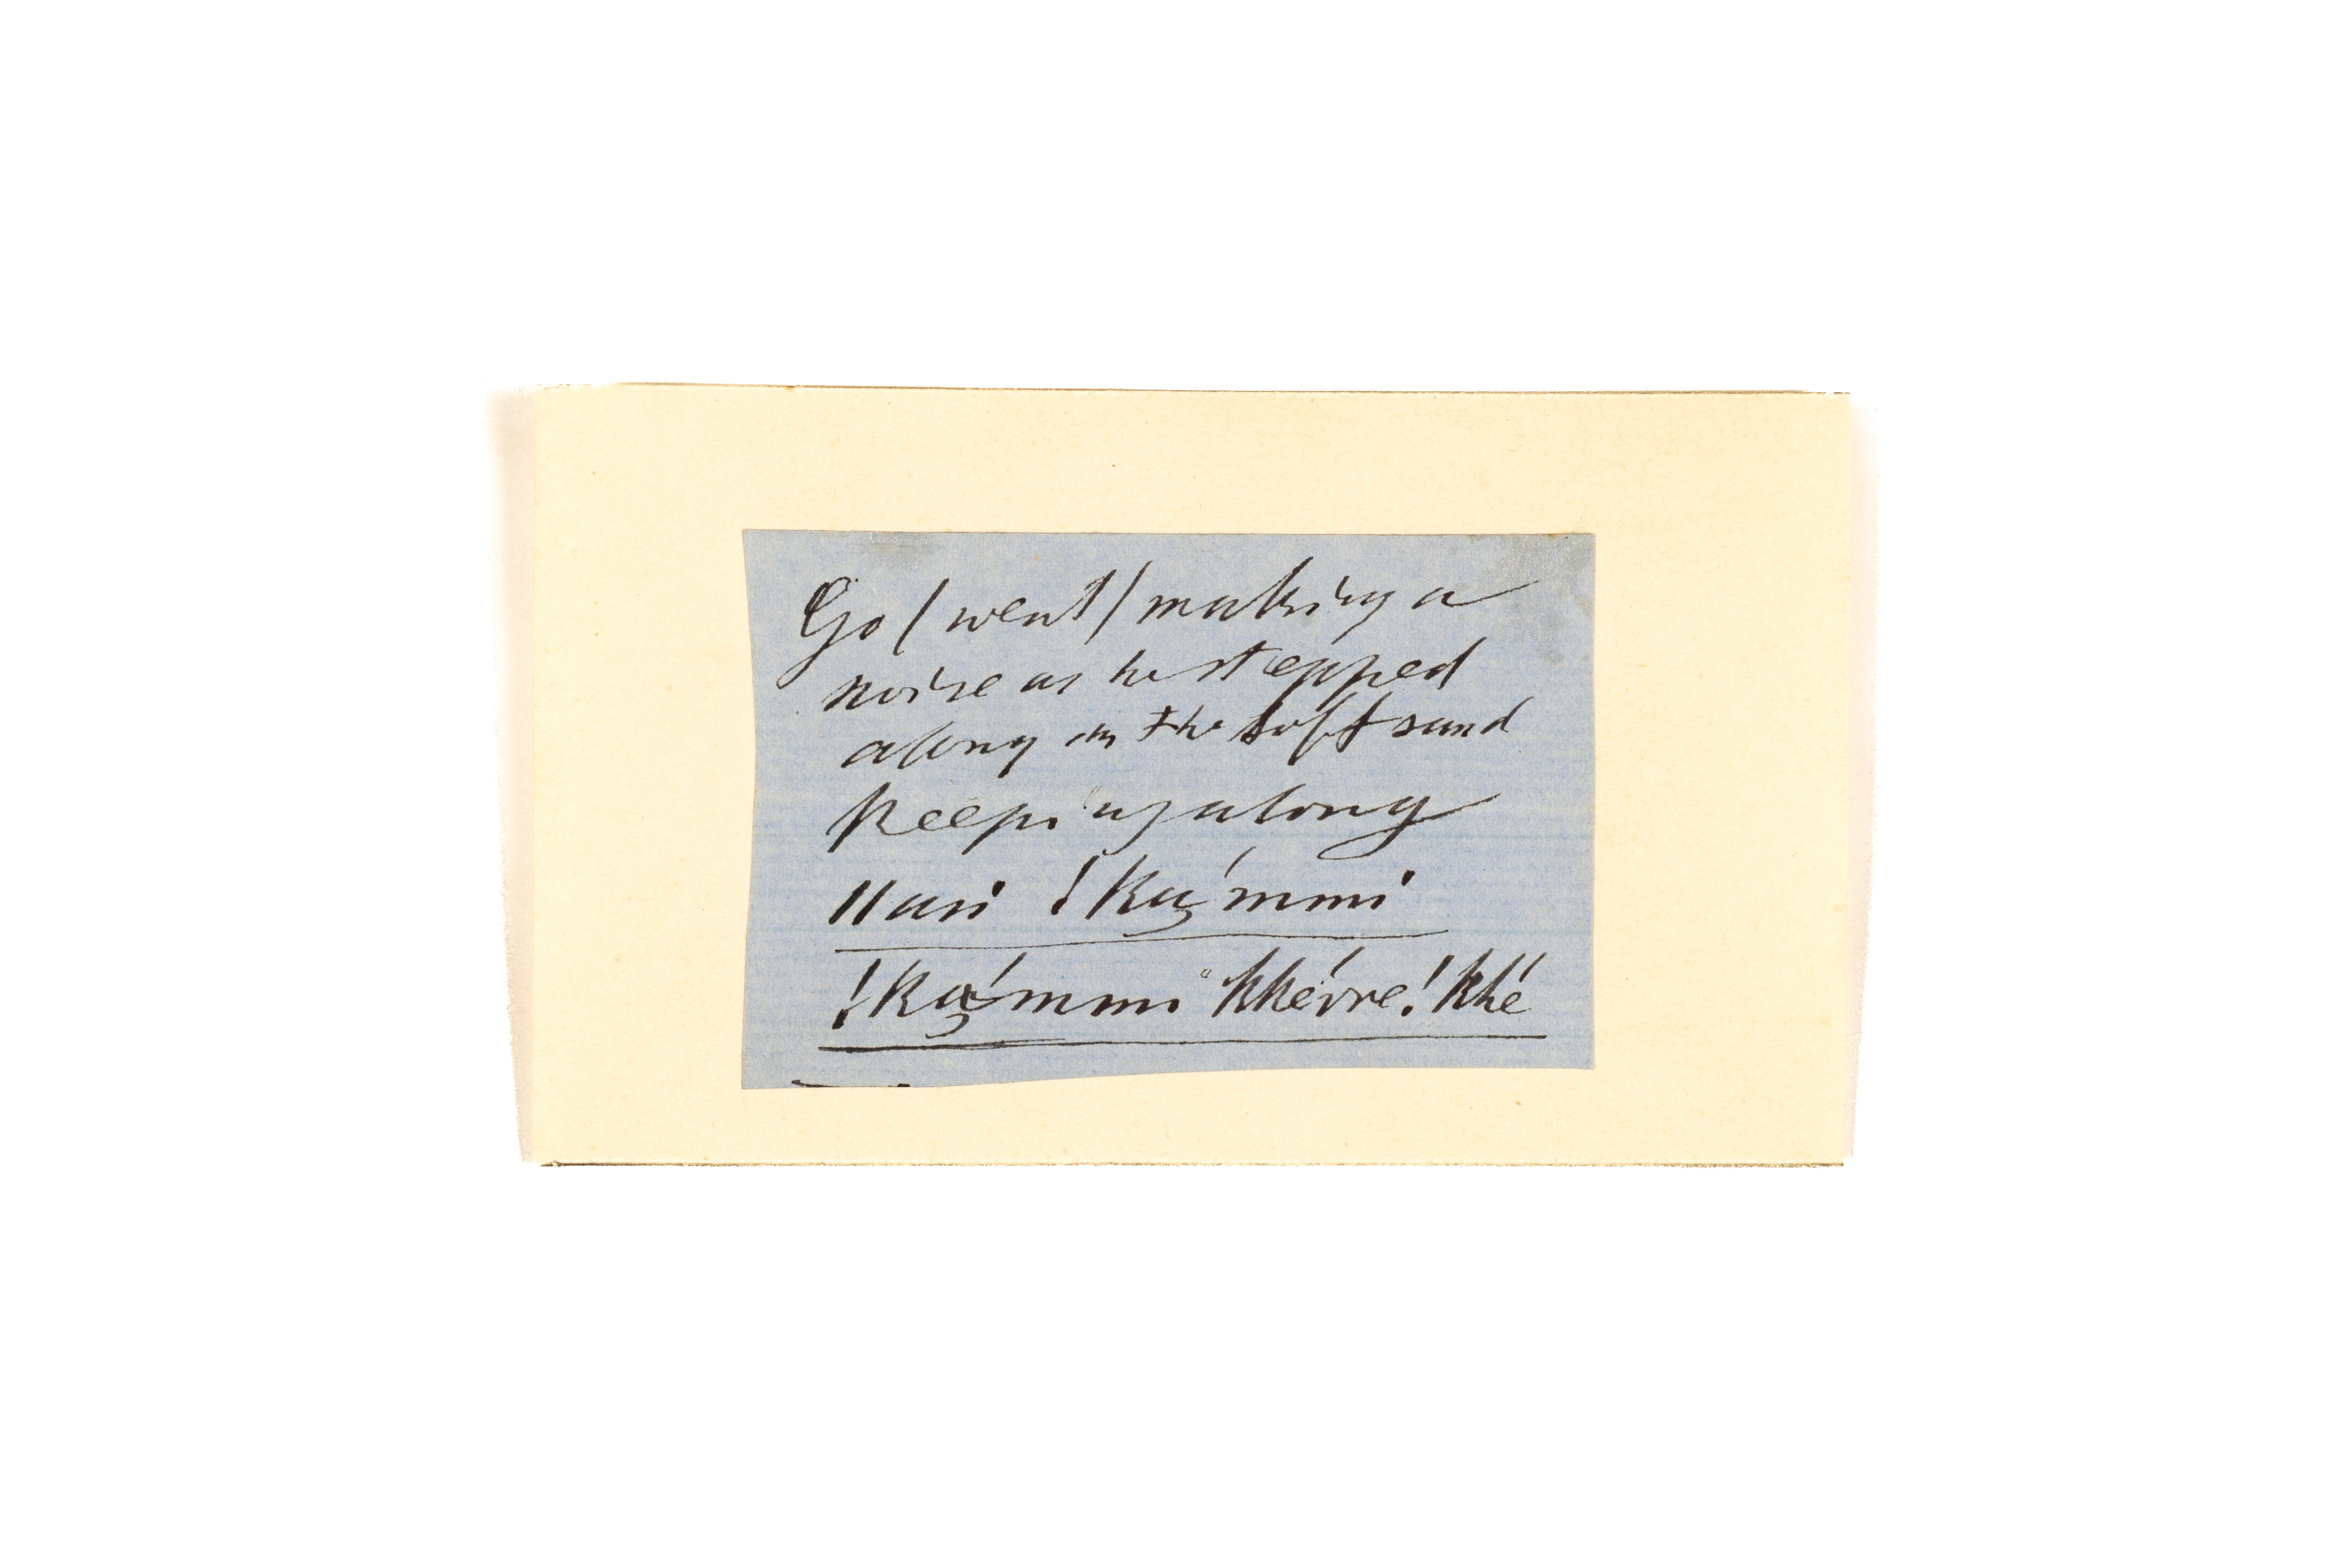 Go (went) making a
noise as he stepped
along in the soft sand
keeping along
ǁasi !ká̧mmi
!ká̧mmi !khé